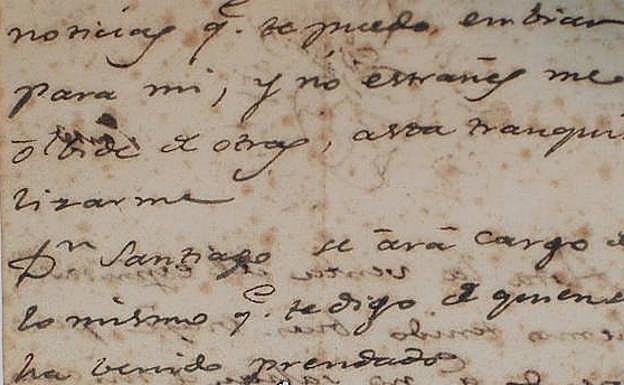 noticias q.e te puedo embiar
para mi, y no estrañes me
ōlbide de otras, asta tranqui
lizarme
Dn Santiago se ārā cargo d
lo mismo q.e te digo de quien e
ha benido prendado